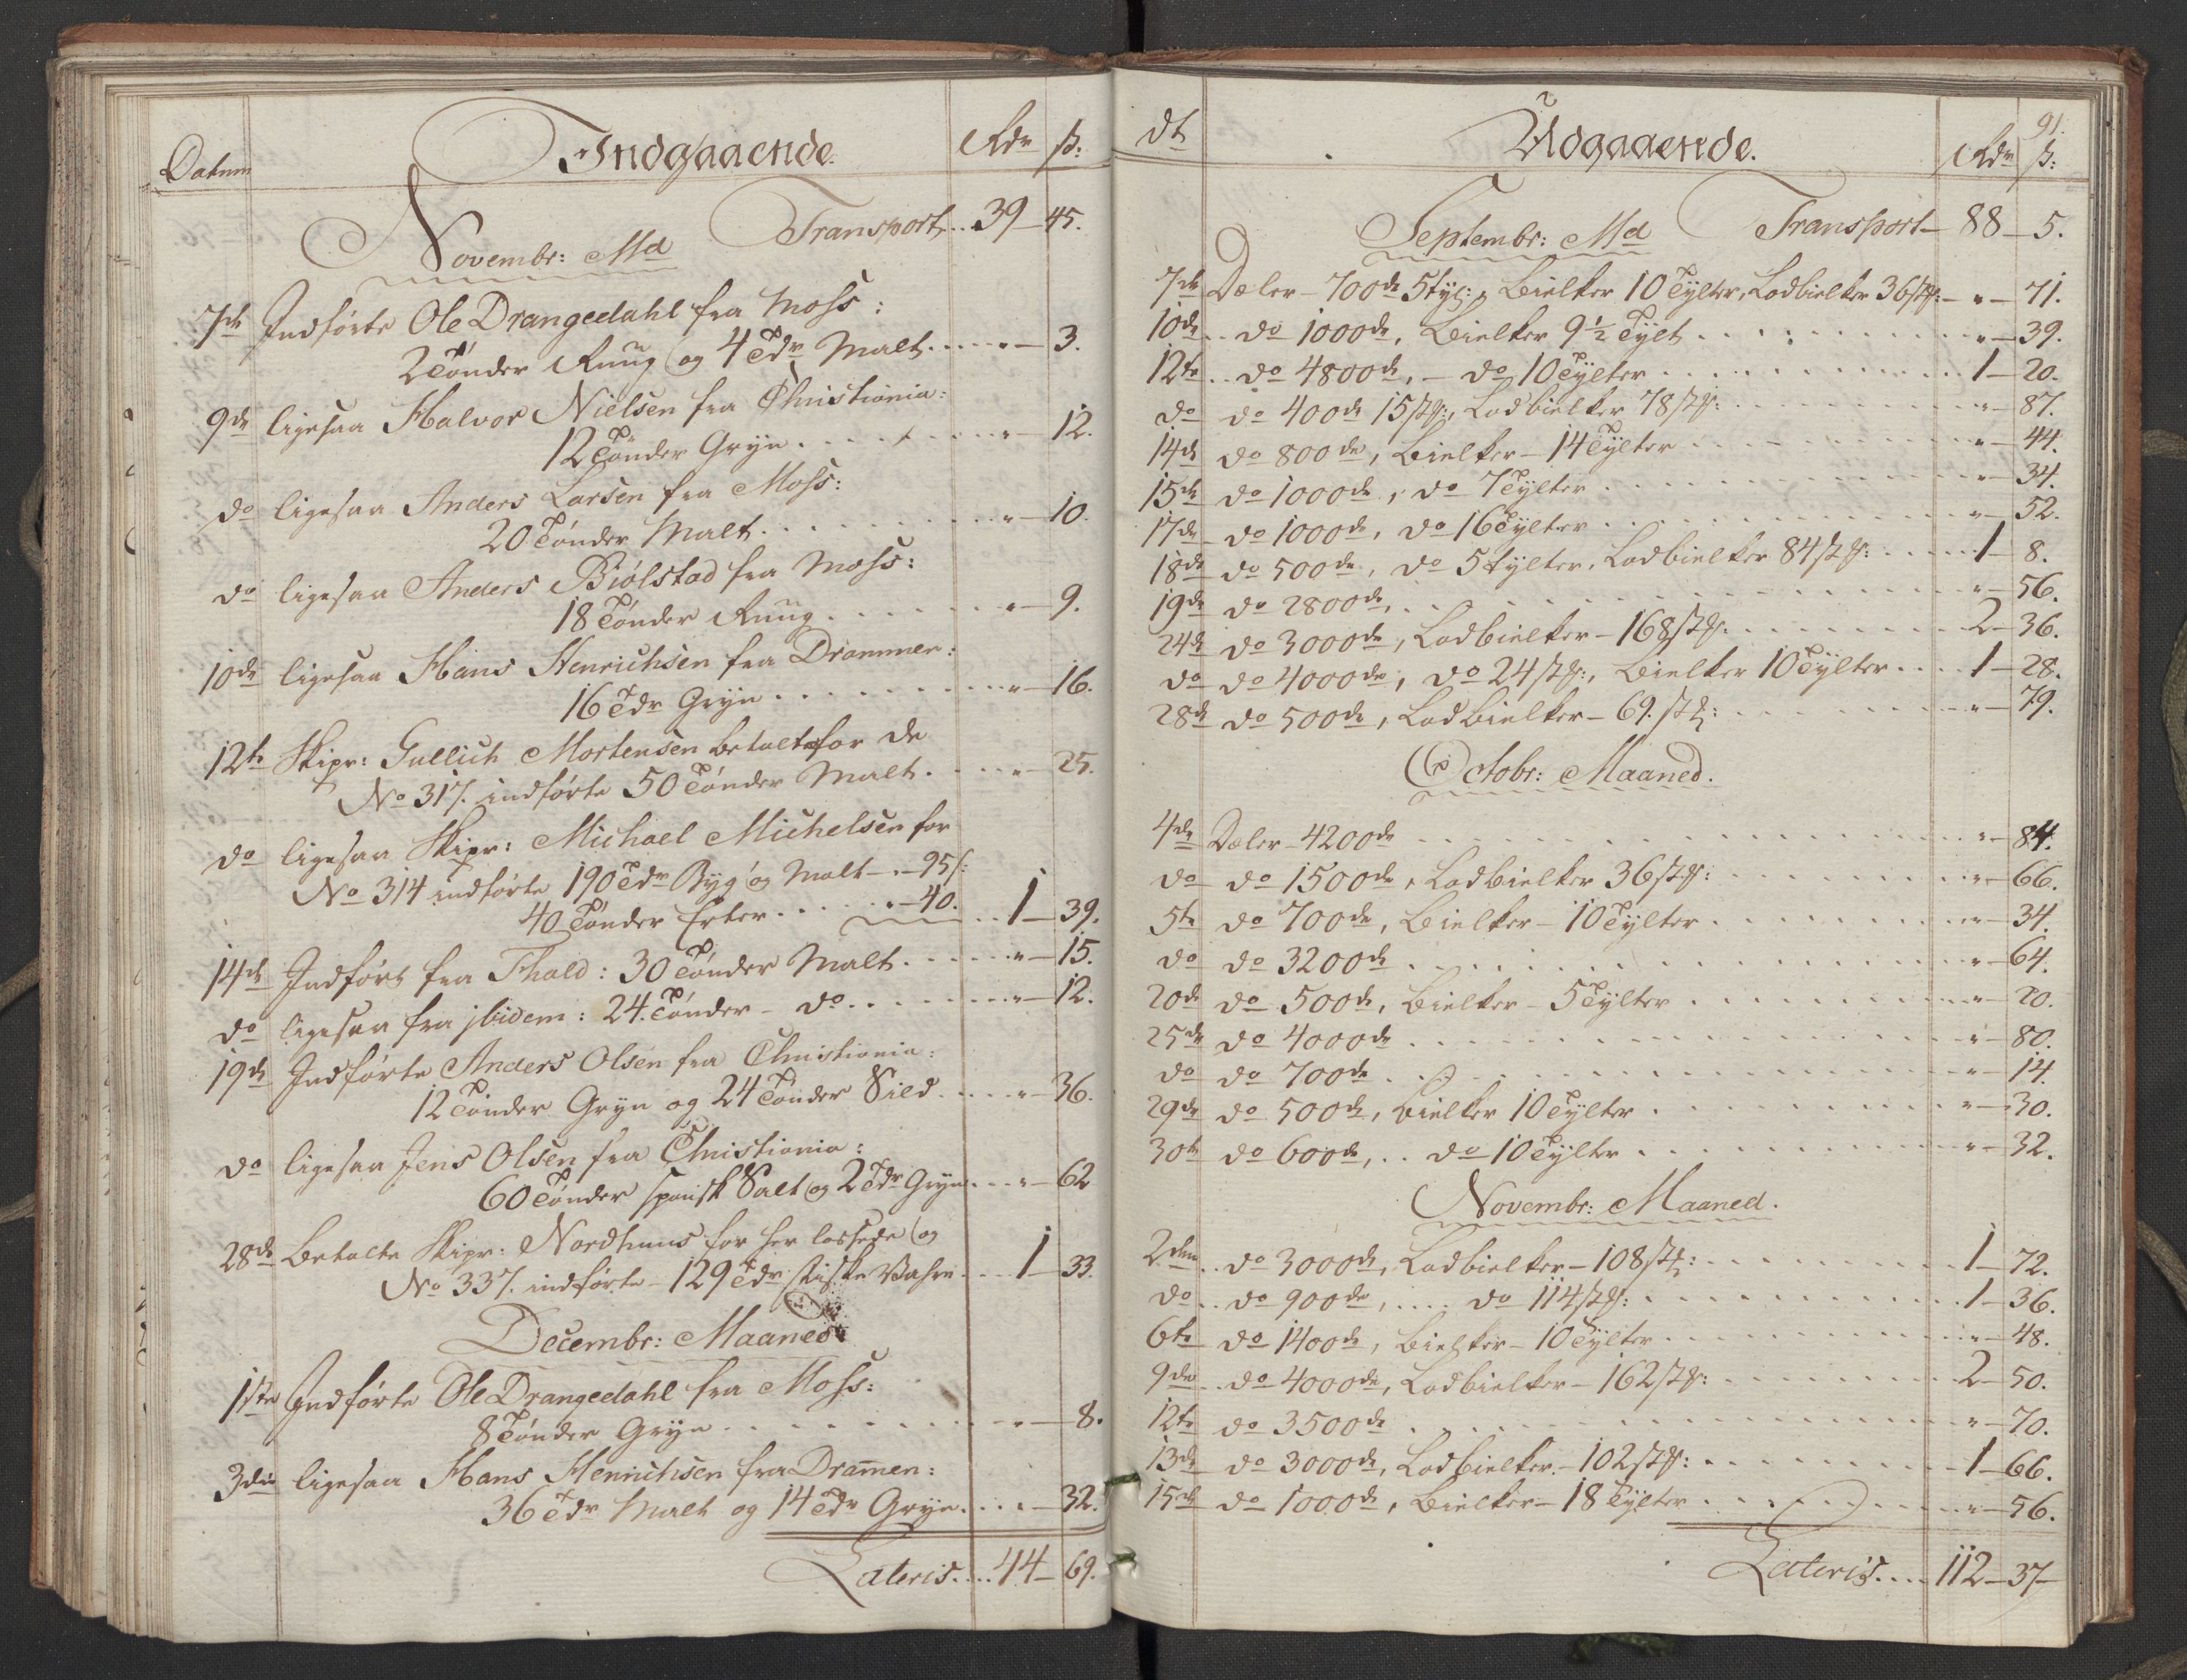 Datum
Indgaaende.
Rdr
ß:
Novembr: Md
Transport .. 39 - 45.
7de Indførte Ole Drangedahl fra Moss:
2 Tønder Ruug og 4 Tdr Malt ..... " - 3.
9de ligesaa Halvor Nielsen fra Christiania:
12 Tønder Gryn ........ " - 12.
do ligesaa Anders Larsen fra Moss:
20 Tønder Malt ......... " - 10.
do ligesaa Anders Biølstad fra Moss:
18 Tønder Ruug ....... " - 9.
10de ligesaa Hans Henrichsen fra Drammen:
16 Tdr Gryn ......... " - 16.
12te Skipr: Gullich Mortensen betalte for de
No 317. indførte 50 Tønder Malt .... " - 25.
do ligesaa Skipr: Michael Michelsen for
No 314 indførte 190 Tdr Byg og Malt - " - 95 ß:
40 Tønder Erter ...... " - 40. .. 1 - 39.
14de Indført fra Fhald: 30 Tønder Malt ..... " - 15.
do ligesaa fra jbidem: 24. Tønder - do ........ " - 12.
19de Indførte Anders Olsen fra Christiania:
12 Tønder Gryn og 24 Tønder Sild .... " - 36.
do ligesaa Jens Olsen fra Christiania:
60 Tønder spansk Salt og 2 Tdr Gryn ... " - 62
28de Betalte Skipr: Nordhuus for her lossede og
No 337. indførte - 129 Tdr Vahre ... 1 - 33.
Decembr: Maaned.
1ste Indførte Ole Drangedahl fra Moss:
8 Tønder Gryn ......... " - 8.
3die ligesaa Hans Henrichsen fra Dram̄en:
36 Tdr Malt og 14 Tdr Gryn ... " - 32.
Lateris .... 44 - 69.
dt
Udgaaende.
91.
Rdr
ß:
Septembr: Md
Transport - 88 - 5.
7de Dæler - 700de 5 tyl:, Bielker 10 Tylter, Lodbielker 36 stk: - " - 71.
10de .. do 1000de, Bielker 9 1/2 Tylt ......... " - 39.
12te .. do 4800de, - do 10 Tylter .......... 1 - 20.
do do 400de 15 stk:, Lodbielker 78 stk: ........ " - 87.
14de do 800de, Bielker - 14 Tylter ......... " - 44.
15de do 1000de, do 7 Tylter .......... " - 34.
17de do 1000de, do 16 Tylter .......... " - 52.
18de do 500de, do 5 tylter, Lodbielker 84 stk: ..... 1 - 8.
19de do 2800de, .............. " - 56.
24de do 3000de, Lodbielker - 168 stk. ........ 2 - 36.
do do 4000de, do 24 stk:, Bielker 10 Tylter .... 1 - 28.
28de do 500de, Lodbielker - 69. stk: ......... " - 79.
Octobr: Maaned.
4de Dæler - 4200de .............. " - 84.
do do 1500de, Lodbielker 36 stk: ......... " - 66.
5te do 700de, Bielker - 10 Tylter ......... " - 34.
do do 3200de .............. " - 64.
20de do 500de, Bielker - 5 Tylter ......... " - 20.
25de do 4000de .............. " - 80.
do do 700de .............. " - 14.
29de do 500de, Bielker 10 Tylter ......... " - 30.
30te do 600de, .. do 10 Tylter .......... " - 32.
Novembr: Maaned.
2den .. do 3000de, Lodbielker - 108 stk: ........ 1 - 72.
do .. do 900de, .... do 114 stk: ......... 1 - 36.
6te do 1400de, Bielker - 10 Tylter ......... " - 48.
9de .. do 4000de, Lodbielker - 162 stk: ........ 2 - 50.
12te do 3500de .............. " - 70.
13de do 3000de, Lodbielker - 102 stk: ........ 1 - 66.
15de do 1000de, Bielker - 18 Tylter ........ " - 56.
Lateris .... 112 - 37 -